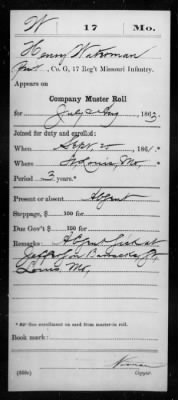 W 17 Mo.
Henry Waterman
Pvt., Co. G, 17 Reg't Missouri Infantry.
Appears on
Company Muster Roll
for July & Aug, 1863.
Joined for duty and enrolled:
When Sept. 20, 1861.*
Where St. Louis, Mo.
Period 3 years.*
Present or absent Absent
Stoppage, $ 100 for
Due Gov't $ 100 for
Remarks: Absent sick at
Jefferson Barracks, St.
Louis, Mo.
* See enrollment on card from muster-in roll.
Book mark:
(358c) Copyist.